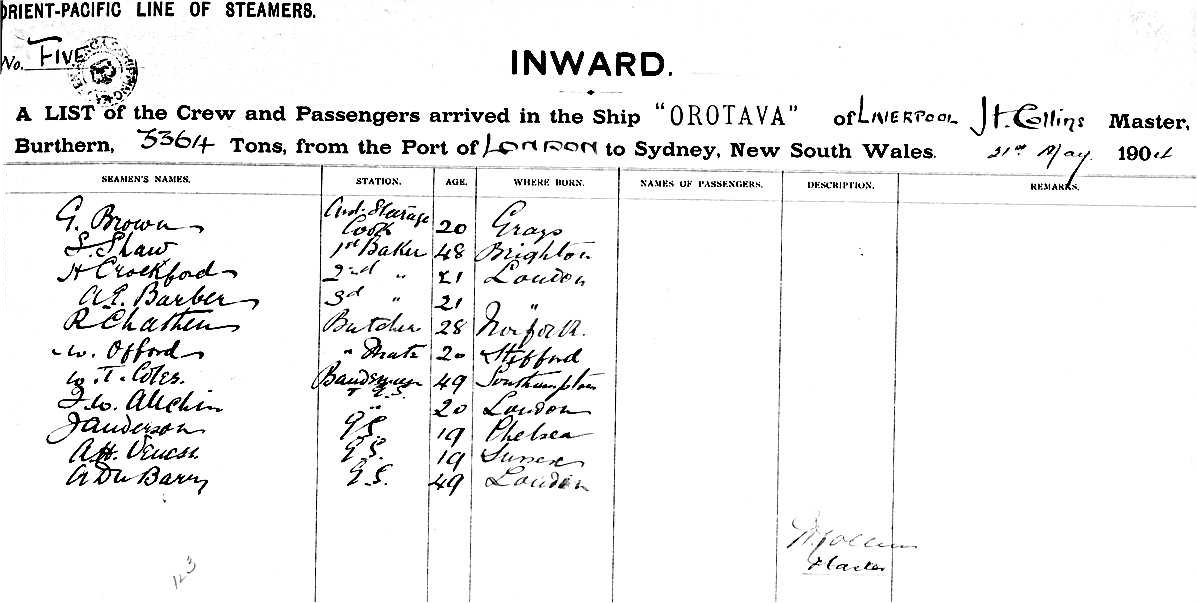 ORIENT-PACIFIC LINE OF STEAMERS.
No. FIVE
INWARD.
A LIST of the Crew and Passengers arrived in the Ship "OROTAVA" of LIVERPOOL Collins Master,
Burthern, 3364 Tons, from the Port of LONDON to Sydney, New South Wales. 21st May 1904
SEAMEN'S NAMES. STATION. AGE. WHERE BORN. NAMES OF PASSENGERS. DESCRIPTION. REMARKS.
G. Brown Steerage Cook 20 Grays
S. Shaw 1st Baker 48 Brighton
H Crockford 2nd " 21 London
A.E. Barber 3rd " 21 "
R Chatten Butcher 28 Norfolk.
W. Offord " Mate 20 Stifford
W.T. Coles. Bandsman & G.S. 49 Southampton
F.W. Allchin " 20 London
J Anderson G.S. 19 Chelsea
A.H. Veness. G.S. 19 Sussex
A Du Barry G.S. 49 London
Collins
Master
123